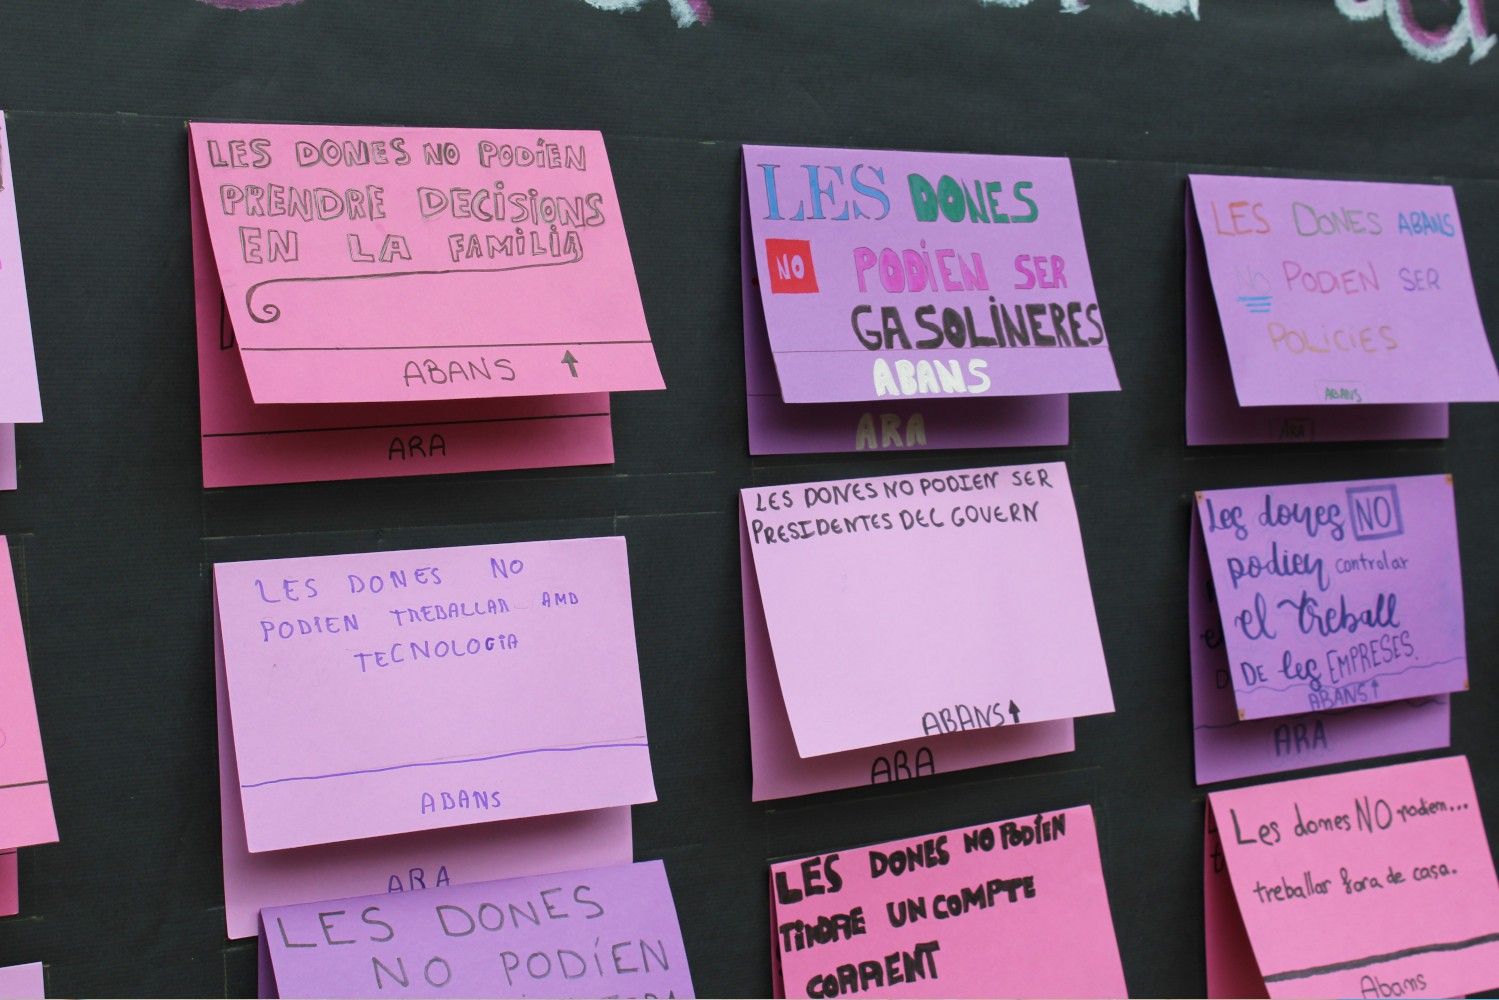 LES DONES NO PODÍEN
PRENDRE DECISIONS
EN LA FAMILIA
ABANS ↑
ARA
LES DONES
NO PODÍEN SER
GASOLINERES
ABANS
ARA
LES DONES ABANS
NO PODIEN SER
POLICIES
ABANS
ARA
LES DONES NO
PODIEN TREBALLAR AMB
TECNOLOGIA
ABANS
ARA
LES DONES NO PODIEN SER
PRESIDENTES DEL GOVERN
ABANS↑
ARA
Les dones NO
podien controlar
el treball
DE les EMPRESES.
ABANS↑
ARA
LES DONES
NO PODÍEN
LES DONES NO PODÍEN
TINDRE UN COMPTE
CORRENT
Les dones NO podien...
treballar fora de casa.
Abans